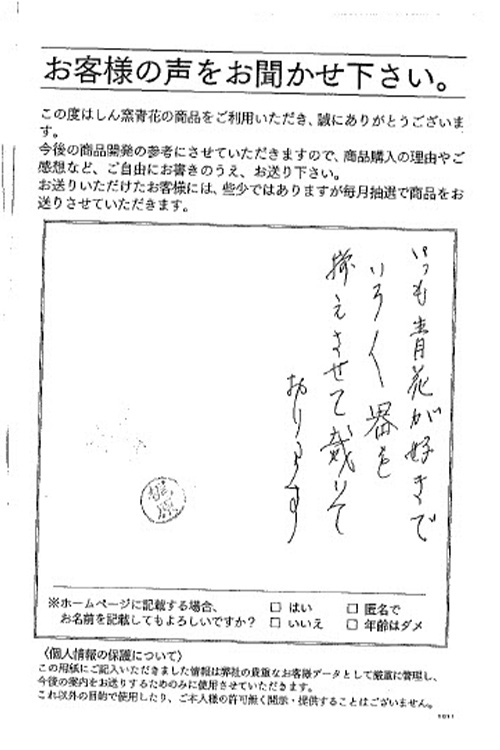 お客様の声をお聞かせ下さい。
この度はしん窯青花の商品をご利用いただき、誠にありがとうございま
す。
今後の商品開発の参考にさせていただきますので、商品購入の理由やご
感想など、ご自由にお書きのうえ、お送り下さい。
お送りいただけたお客様には、些少ではありますが毎月抽選で商品をお
送りさせていただきます。
いつも青花が好きで
いろ〱器を
揃えさせて戴いて
おります
※ホームページに記載する場合、
お名前を記載してもよろしいですか?
□ はい □ 匿名で
□ いいえ □ 年齢はダメ
〈個人情報の保護について〉
この用紙にご記入いただきました情報は弊社の貴重なお客様データとして厳重に管理し、
今後の案内をお送りするためのみに使用させていただきます。
これ以外の目的で使用したり、ご本人様の許可無く開示・提供することはございません。